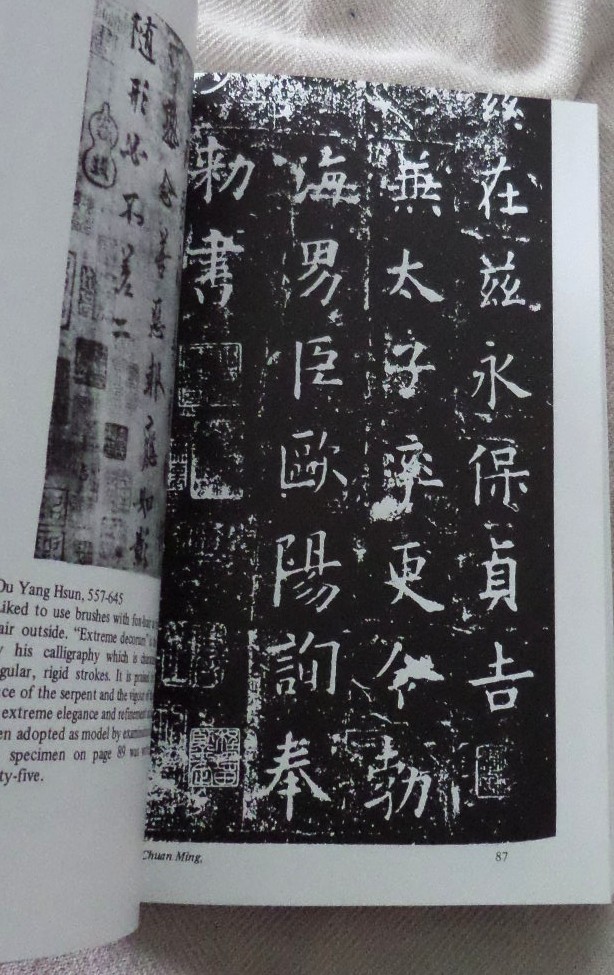 念善惡報應如影
隨形必不差二
Ou Yang Hsun, 557-645
Liked to use brushes with
air outside. "Extreme decorum" is
his calligraphy which is
gular, rigid strokes. It is
ce of the serpent and the vigour of
extreme elegance and refinement
en adopted as model by
specimen on page 89 was
ty-five.
在兹永保貞吉
兼太子率更令勃
海男臣歐陽詢奉
勅書
Chuan Ming,
87